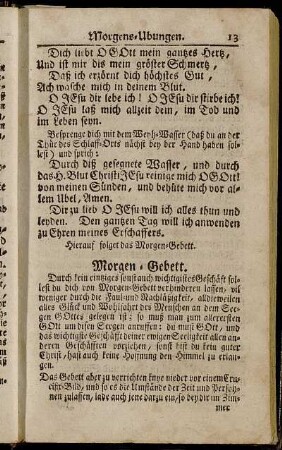 Morgens-Ubungen. 13
Dich liebt O GOtt mein gantzes Hertz,
Und ist mir dis mein gröster Schmertz,
Daß ich erzörnt dich höchstes Gut,
Ach wasche mich in deinem Blut.
O JEsu dir lebe ich! O JEsu dir stirbe ich!
O JEsu laß mich allzeit dein, im Tod und
im Leben seyn.
Besprenge dich mit dem Weyh-Wasser (daß du an der
Thür des Schlaff-Orts nächst bey der Hand haben sol-
lest) und sprich:
Durch diß gesegnete Wasser, und durch
das H. Blut Christi JEsu reinige mich O GOtt!
von meinen Sünden, und behüte mich vor al-
lem Ubel, Amen.
Dir zu lieb O JEsu will ich alles thun und
leyden. Den gantzen Tag will ich anwenden
zu Ehren meines Erschaffers.
Hierauf folget das Morgen-Gebett.
Morgen-Gebett.
Durch kein eintziges sonst auch wichtigistes Geschäft sol-
lest du dich von Morgen-Gebett verhinderen lassen, vil
weniger durch die Faul- und Nachläßigkeit, alldieweilen
alles Glück und Wohlfahrt des Menschen an dem See-
gen GOttes gelegen ist: so muß man zum allerersten
GOtt um disen Seegen anruffen: du must GOtt, und
das wichtigste Geschäfft deiner ewigen Seeligkeit allen an-
deren Geschäfften vorziehen, sonst bist du kein guter
Christ, hast auch keine Hoffnung den Himmel zu erlan-
gen.
Das Gebett aber zu verrichten knye nieder vor einem Cru-
cifix-Bild, und so es die Umstände der Zeit und Persoh-
nen zulassen, lade auch jene darzu ein, so bey dir im Zim-
mer